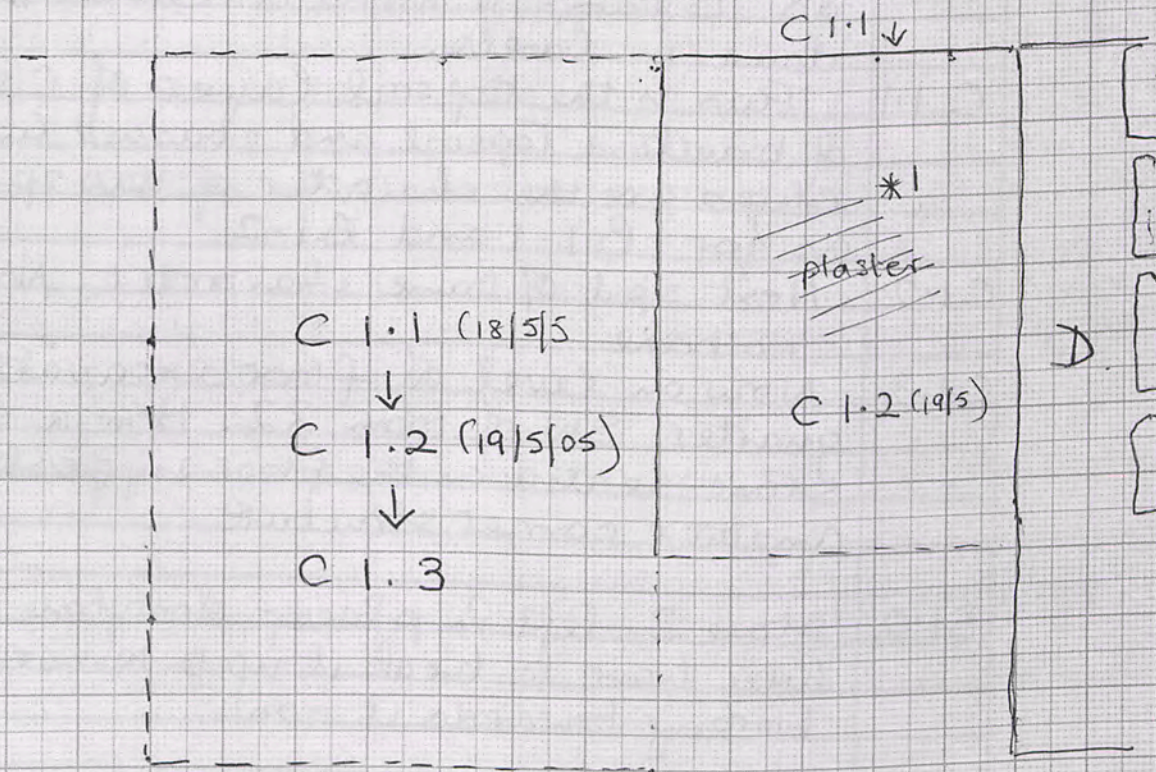 C 1.1 ↓
*1
plaster
C 1.1 (18/5/5
↓
C 1.2 (19/5/05)
↓
C 1.3
C 1.2 (19/5)
D.